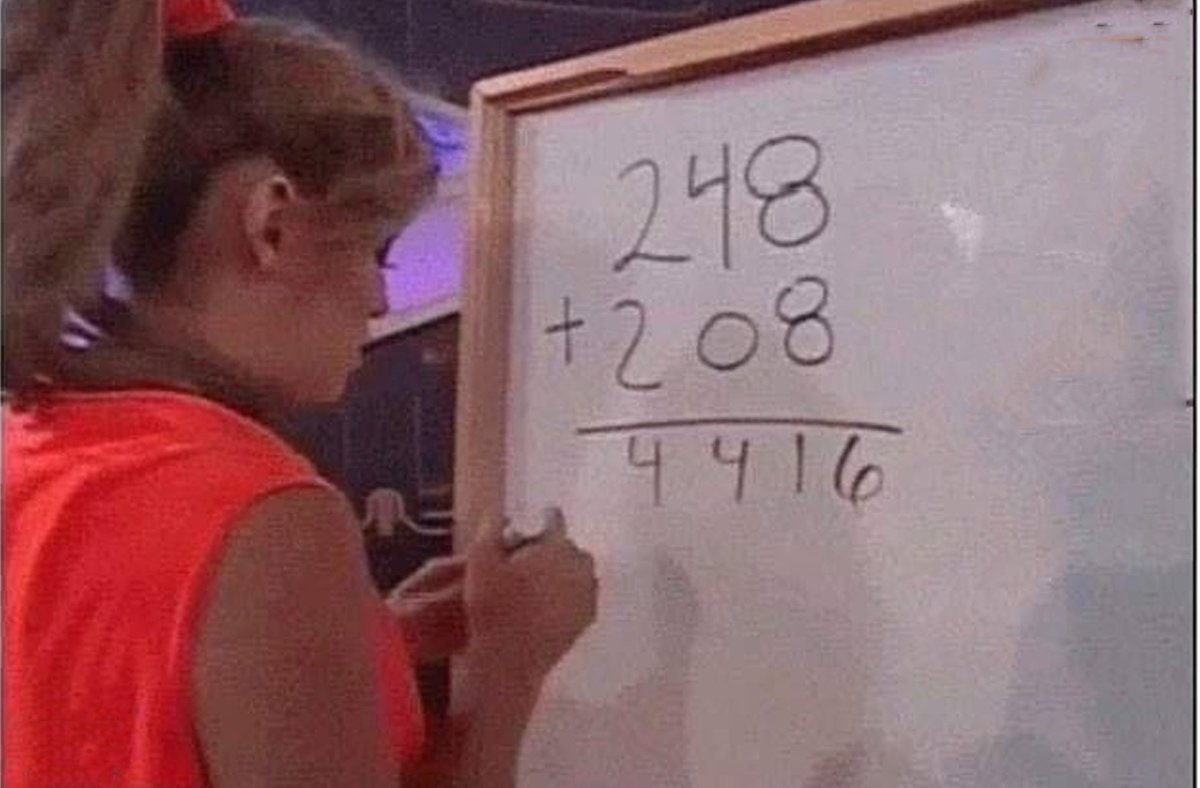 248
+208
4416